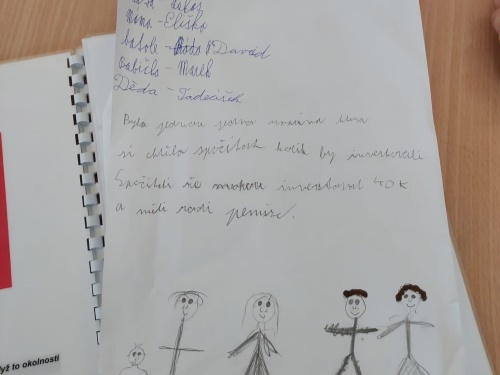 Máma - Eliška
batole - David
babička - Marek
Děda - Tadeášek
Byla jednou jedna rodina která
si chtěla spočítat kolik by investovali
Spočítali že mohou investovat 40 K
a měli rádi peníze.
yž to okolnosti